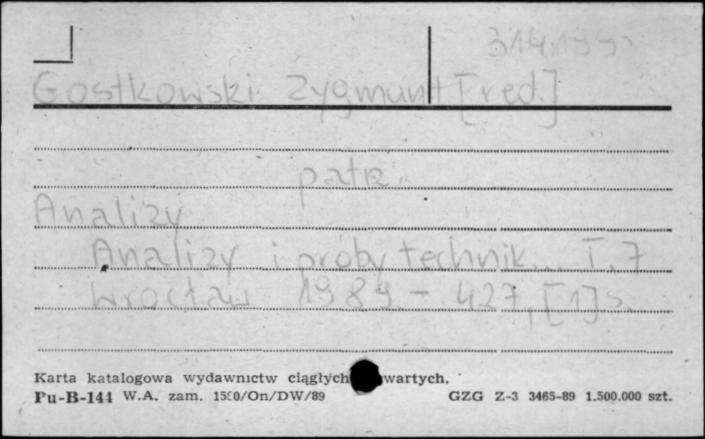 Gostkowski Zygmunt [red.]
patrz
Analizy
Analizy i próby technik... T. 7
Wrocław 1989 - 427, [1] s.
Karta katalogowa wydawnictw ciągłych wartych.
Pu-B-144 W.A. zam. /On/DW/89 GZG Z-3 3465-89 1.500.000 szt.